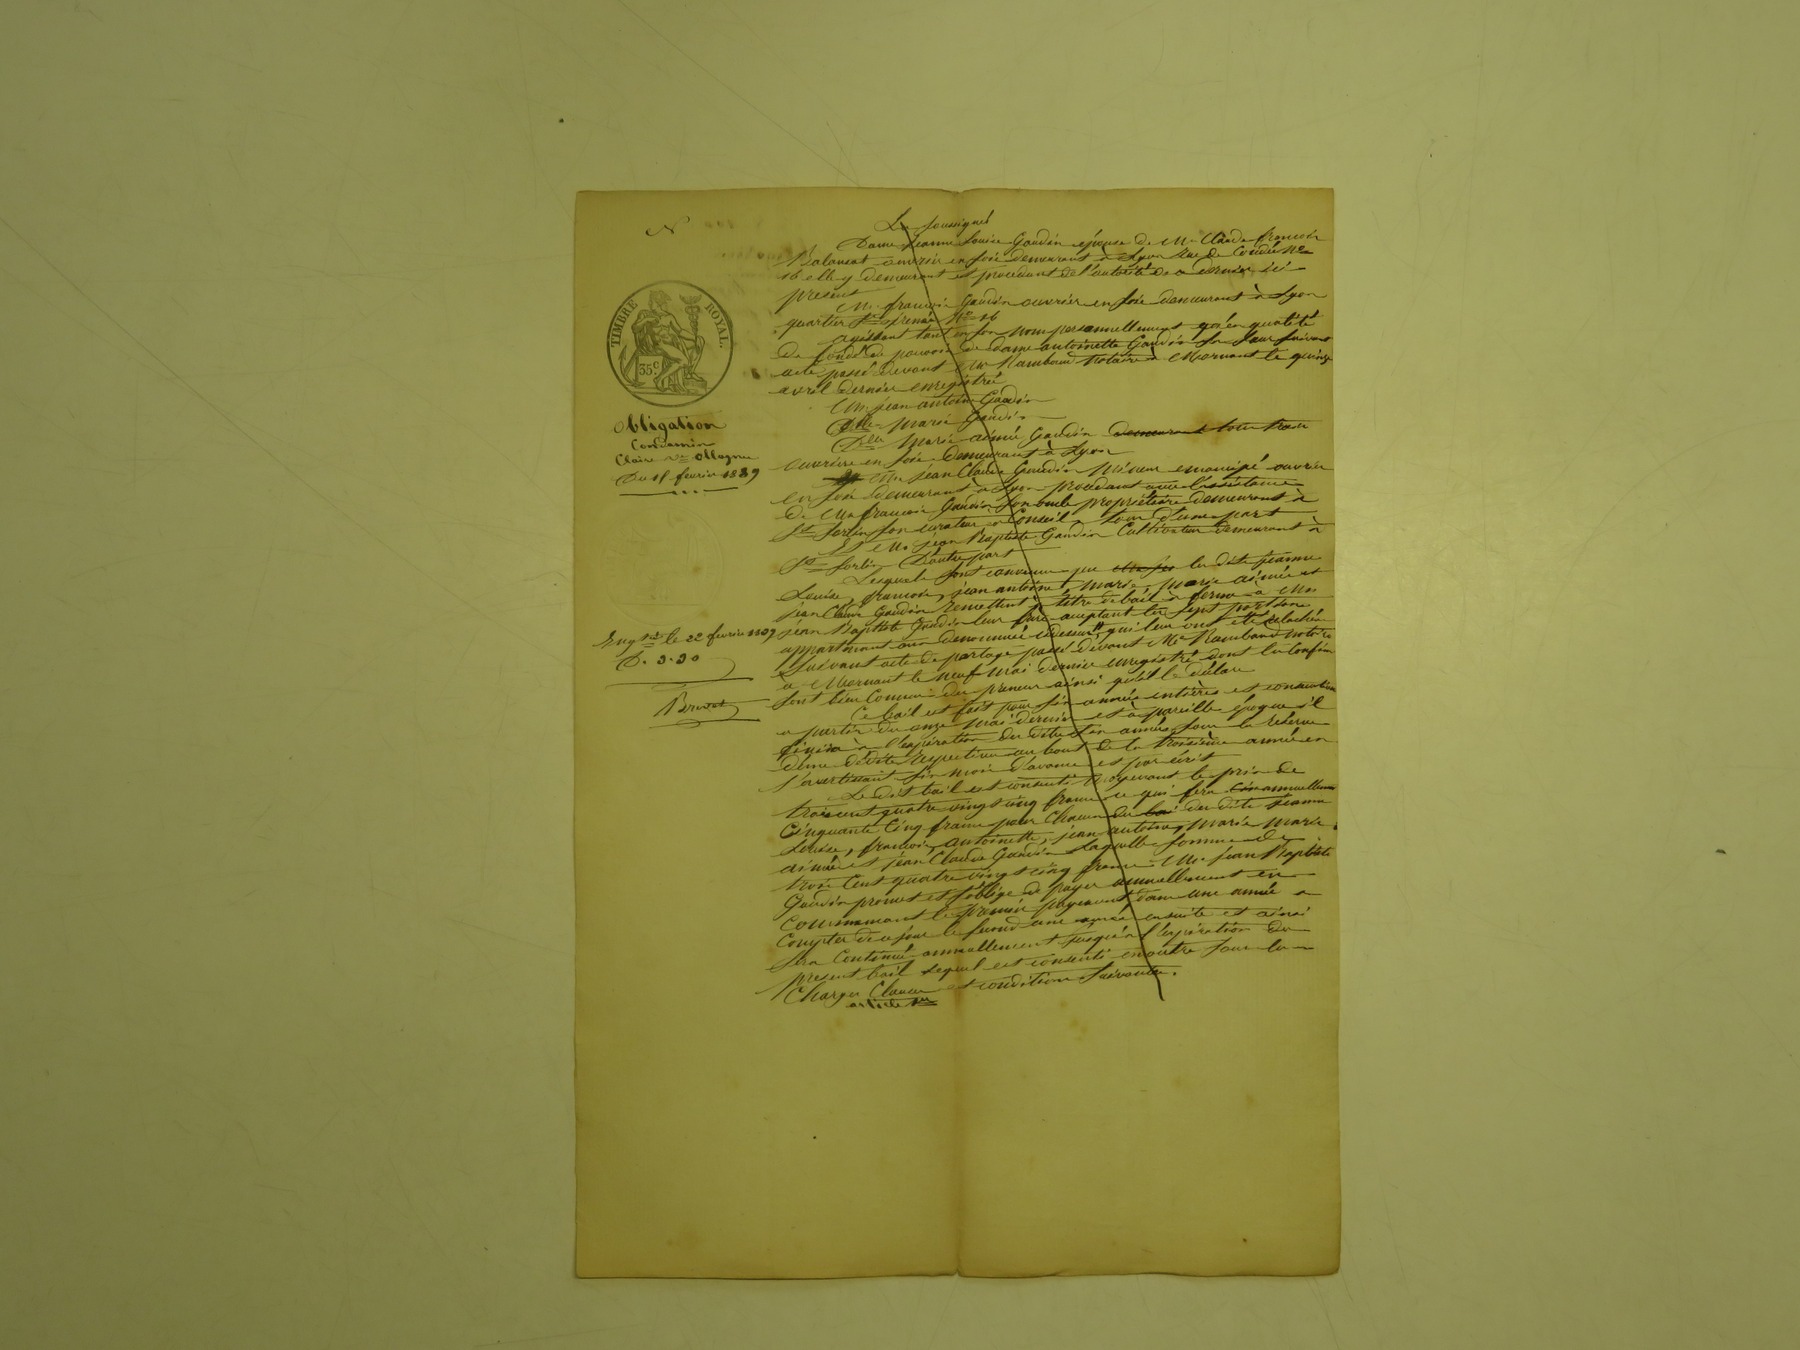 N
Les soussignés
Dame jeanne Louise Gaudin épouse de Mr Claude françois
ouvrier en soie demeurant à Lyon Rue de Condé No
16 elle y demeurant et procedant de l'autorité de ce dernier ici
présent
Mr françois Gaudin ouvrier en soie demeurant à Lyon
quartier St irénée No 16
agissant tant en son nom personnellement qu'en qualité
de fondé de pouvoir de dame antoinette Gaudin sa sœur suivant
acte passé devant Me Rambaud Notaire à Mornant le quinze
avril dernier enregistré
Mr jean antoine Gaudin
Dlle Marie Gaudin
Dlle Marie aimée Gaudin demeurant tous trois
ouvriers en soie demeurant à Lyon
Mr jean Claude Gaudin Mineur emancipé ouvrier
en soie demeurant à Lyon procédant avec l'assistance
de Mr françois Gaudin son oncle propriétaire demeurant à
St Sorlin son curateur à Conseil tous d'une part
Et Mr jean Baptiste Gaudin Cultivateur demeurant à
St Sorlin D'autre part
Lesquels sont convenus que la dite jeanne
Louise, françois, jean antoine, Marie, Marie aimée et
jean Claude Gaudin Remettent à titre de bail à ferme à Mr
jean Baptiste Gaudin leur frère acceptant les sept portions
appartenant aux denommés cidessus, qui leur ont été relachées
suivant acte de partage passé devant Me Rambaud notaire
à Mornant le neuf Mai dernier enregistré dont les confins
sont bien Connus du preneur ainsi qu'il le déclare
Ce bail est fait pour six années entières et consecutives
a partir du onze Mai dernier et à pareille époque s'il
finira à l'expiration des dites six années sous la Réserve
d'une dedite respective au bout de la troisième année en
s'avertissant six mois d'avance et par écrit
Le dit bail est consenti Moyennant le prix de
trois cent quatre vingt cinq francs ce qui fera annuellement
Cinquante Cinq francs pour Chacun des dits jeanne
Louise, françois, antoinette, jean antoine, Marie Marie
aimée et jean Claude Gaudin Laquelle somme de
trois Cent quatre vingt cinq francs Mr jean Baptiste
Gaudin promet et s'oblige de payer annuellement en
Commencant le premier payement dans une année a
Compter de ce jour le second une année ensuite et ainsi
sera Continué annuellement jusqu'a l'expiration du
present bail lequel est consenti en outre sous les
Charges Clauses et conditions suivantes.
article 1er
TIMBRE ROYAL.
35c
Obligation
Condamin
Claire Ve Ollagnier
Du 18 fevrier 1839
Engtré le 22 fevrier 1839
D. 3.30